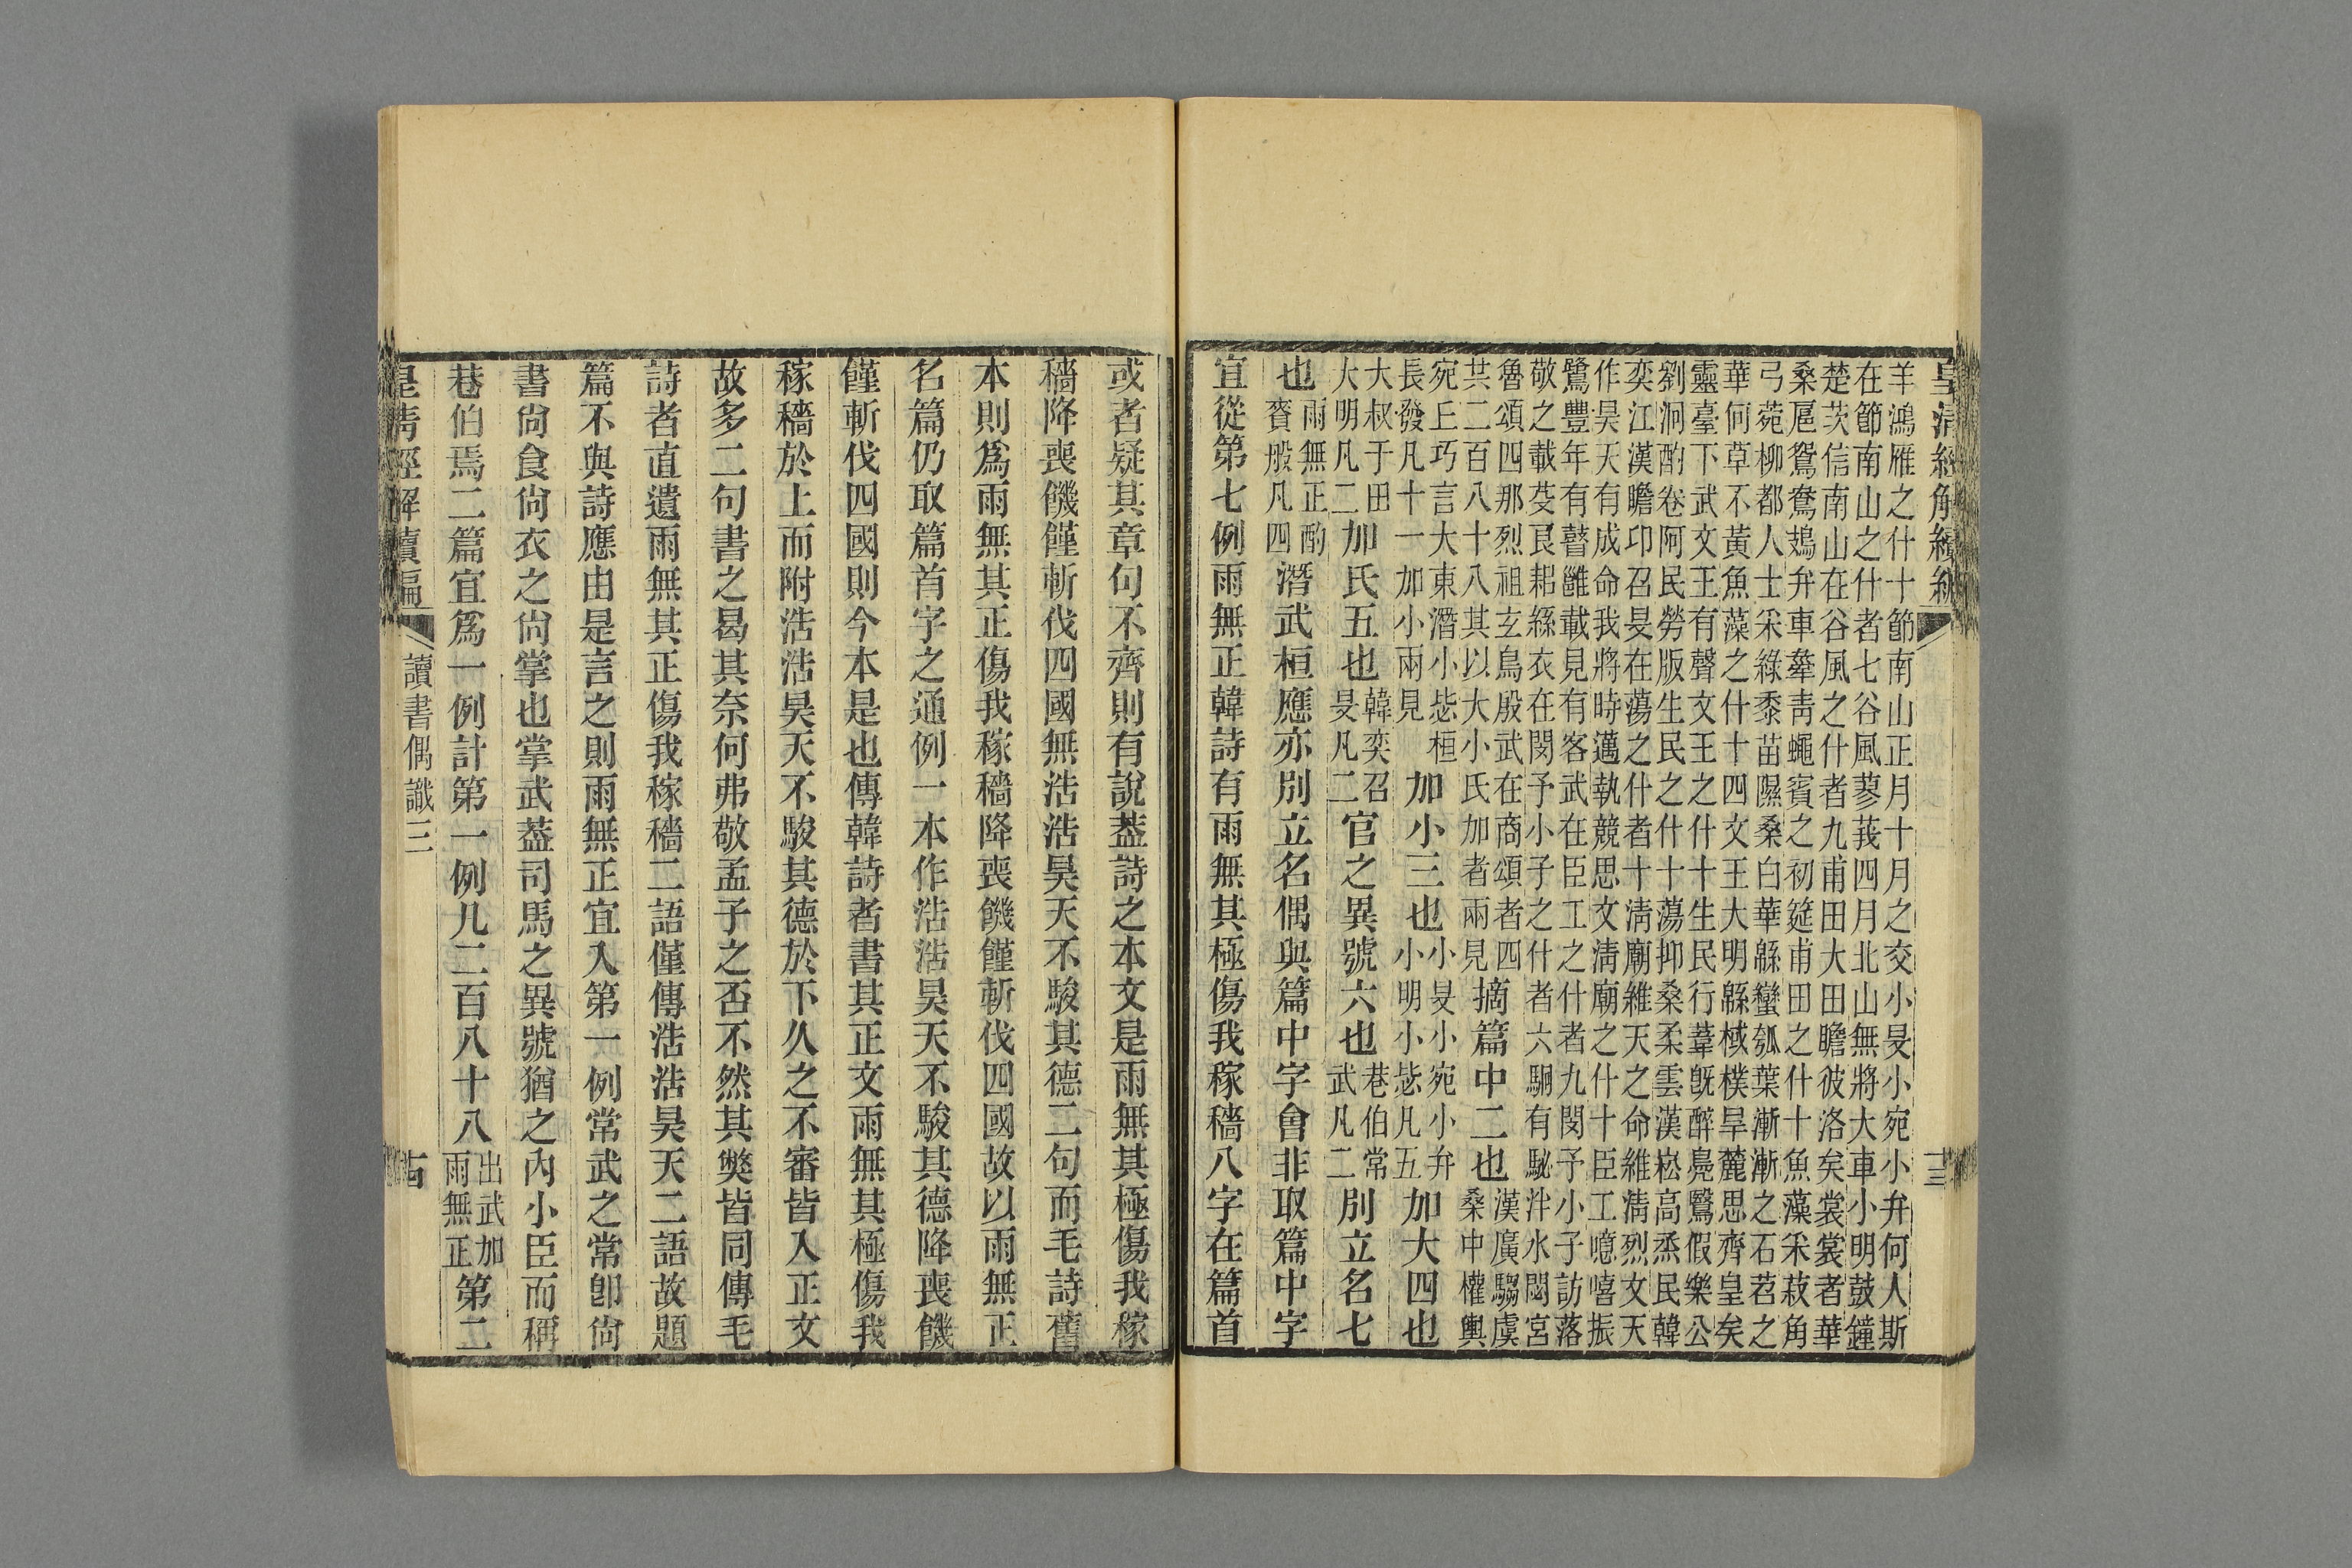 皇清經解續編
十三
羊鴻雁之什十節南山正月十月之交小旻小宛小弁何人斯
在節南山之什者七谷風蓼莪四月北山無將大車小明鼓鐘
楚茨信南山在谷風之什者九甫田大田瞻彼洛矣裳裳者華
桑扈鴛鴦弁車舝青蠅賓之初筵甫田之什十魚藻采菽角
弓菀柳都人士采綠黍苗隰桑白華緜蠻瓠葉漸漸之石苕之
華何草不黃魚藻之什十四文王大明緜棫樸旱麓思齊皇矣
靈臺下武文王有聲文王之什十生民行葦既醉鳧鷖假樂公
劉泂酌卷阿民勞版生民之什十蕩抑桑柔雲漢崧高烝民韓
奕江漢瞻卬召旻在蕩之什者十清廟維天之命維清烈文天
作昊天有成命我將時邁執競思文清廟之什十臣工噫嘻振
鷺豐年有瞽雝載見有客武在臣工之什者九閔予小子訪落
敬之載芟良耜絲衣在閔予小子之什者六駉有駜泮水閟宮
魯頌四那烈祖玄鳥殷武在商頌者四
共二百八十八其以大小氏加者兩見
摘篇中二也
漢廣騶虞
桑中權輿
宛丘巧言大東潛小毖桓
長發凡十一加小兩見
加小三也
小旻小宛小弁
小明小毖凡五
加大四也
大叔于田
大明凡二
加氏五也
韓奕召
旻凡二
官之異號六也
巷伯常
武凡二
別立名七
也
雨無正酌
賚般凡四
潛武桓應亦別立名偶與篇中字會非取篇中字
宜從第七例雨無正韓詩有雨無其極傷我稼穡八字在篇首
或者疑其章句不齊則有說葢詩之本文是雨無其極傷我稼
穡降喪饑饉斬伐四國無浩浩昊天不駿其德二句而毛詩舊
本則爲雨無其正傷我稼穡降喪饑饉斬伐四國故以雨無正
名篇仍取篇首字之通例一本作浩浩昊天不駿其德降喪饑
饉斬伐四國則今本是也傳韓詩者書其正文雨無其極傷我
稼穡於上而附浩浩昊天不駿其德於下久之不審皆入正文
故多二句書之曷其奈何弗敬孟子之否不然其獘皆同傳毛
詩者直遺雨無其正傷我稼穡二語僅傳浩浩昊天二語故題
篇不與詩應由是言之則雨無正宜入第一例常武之常卽尙
書尙食尙衣之尙掌也掌武葢司馬之異號猶之內小臣而稱
巷伯焉二篇宜爲一例計第一例凡二百八十八
出武加
雨無正
第二
皇清經解續編
讀書偶識三
十四